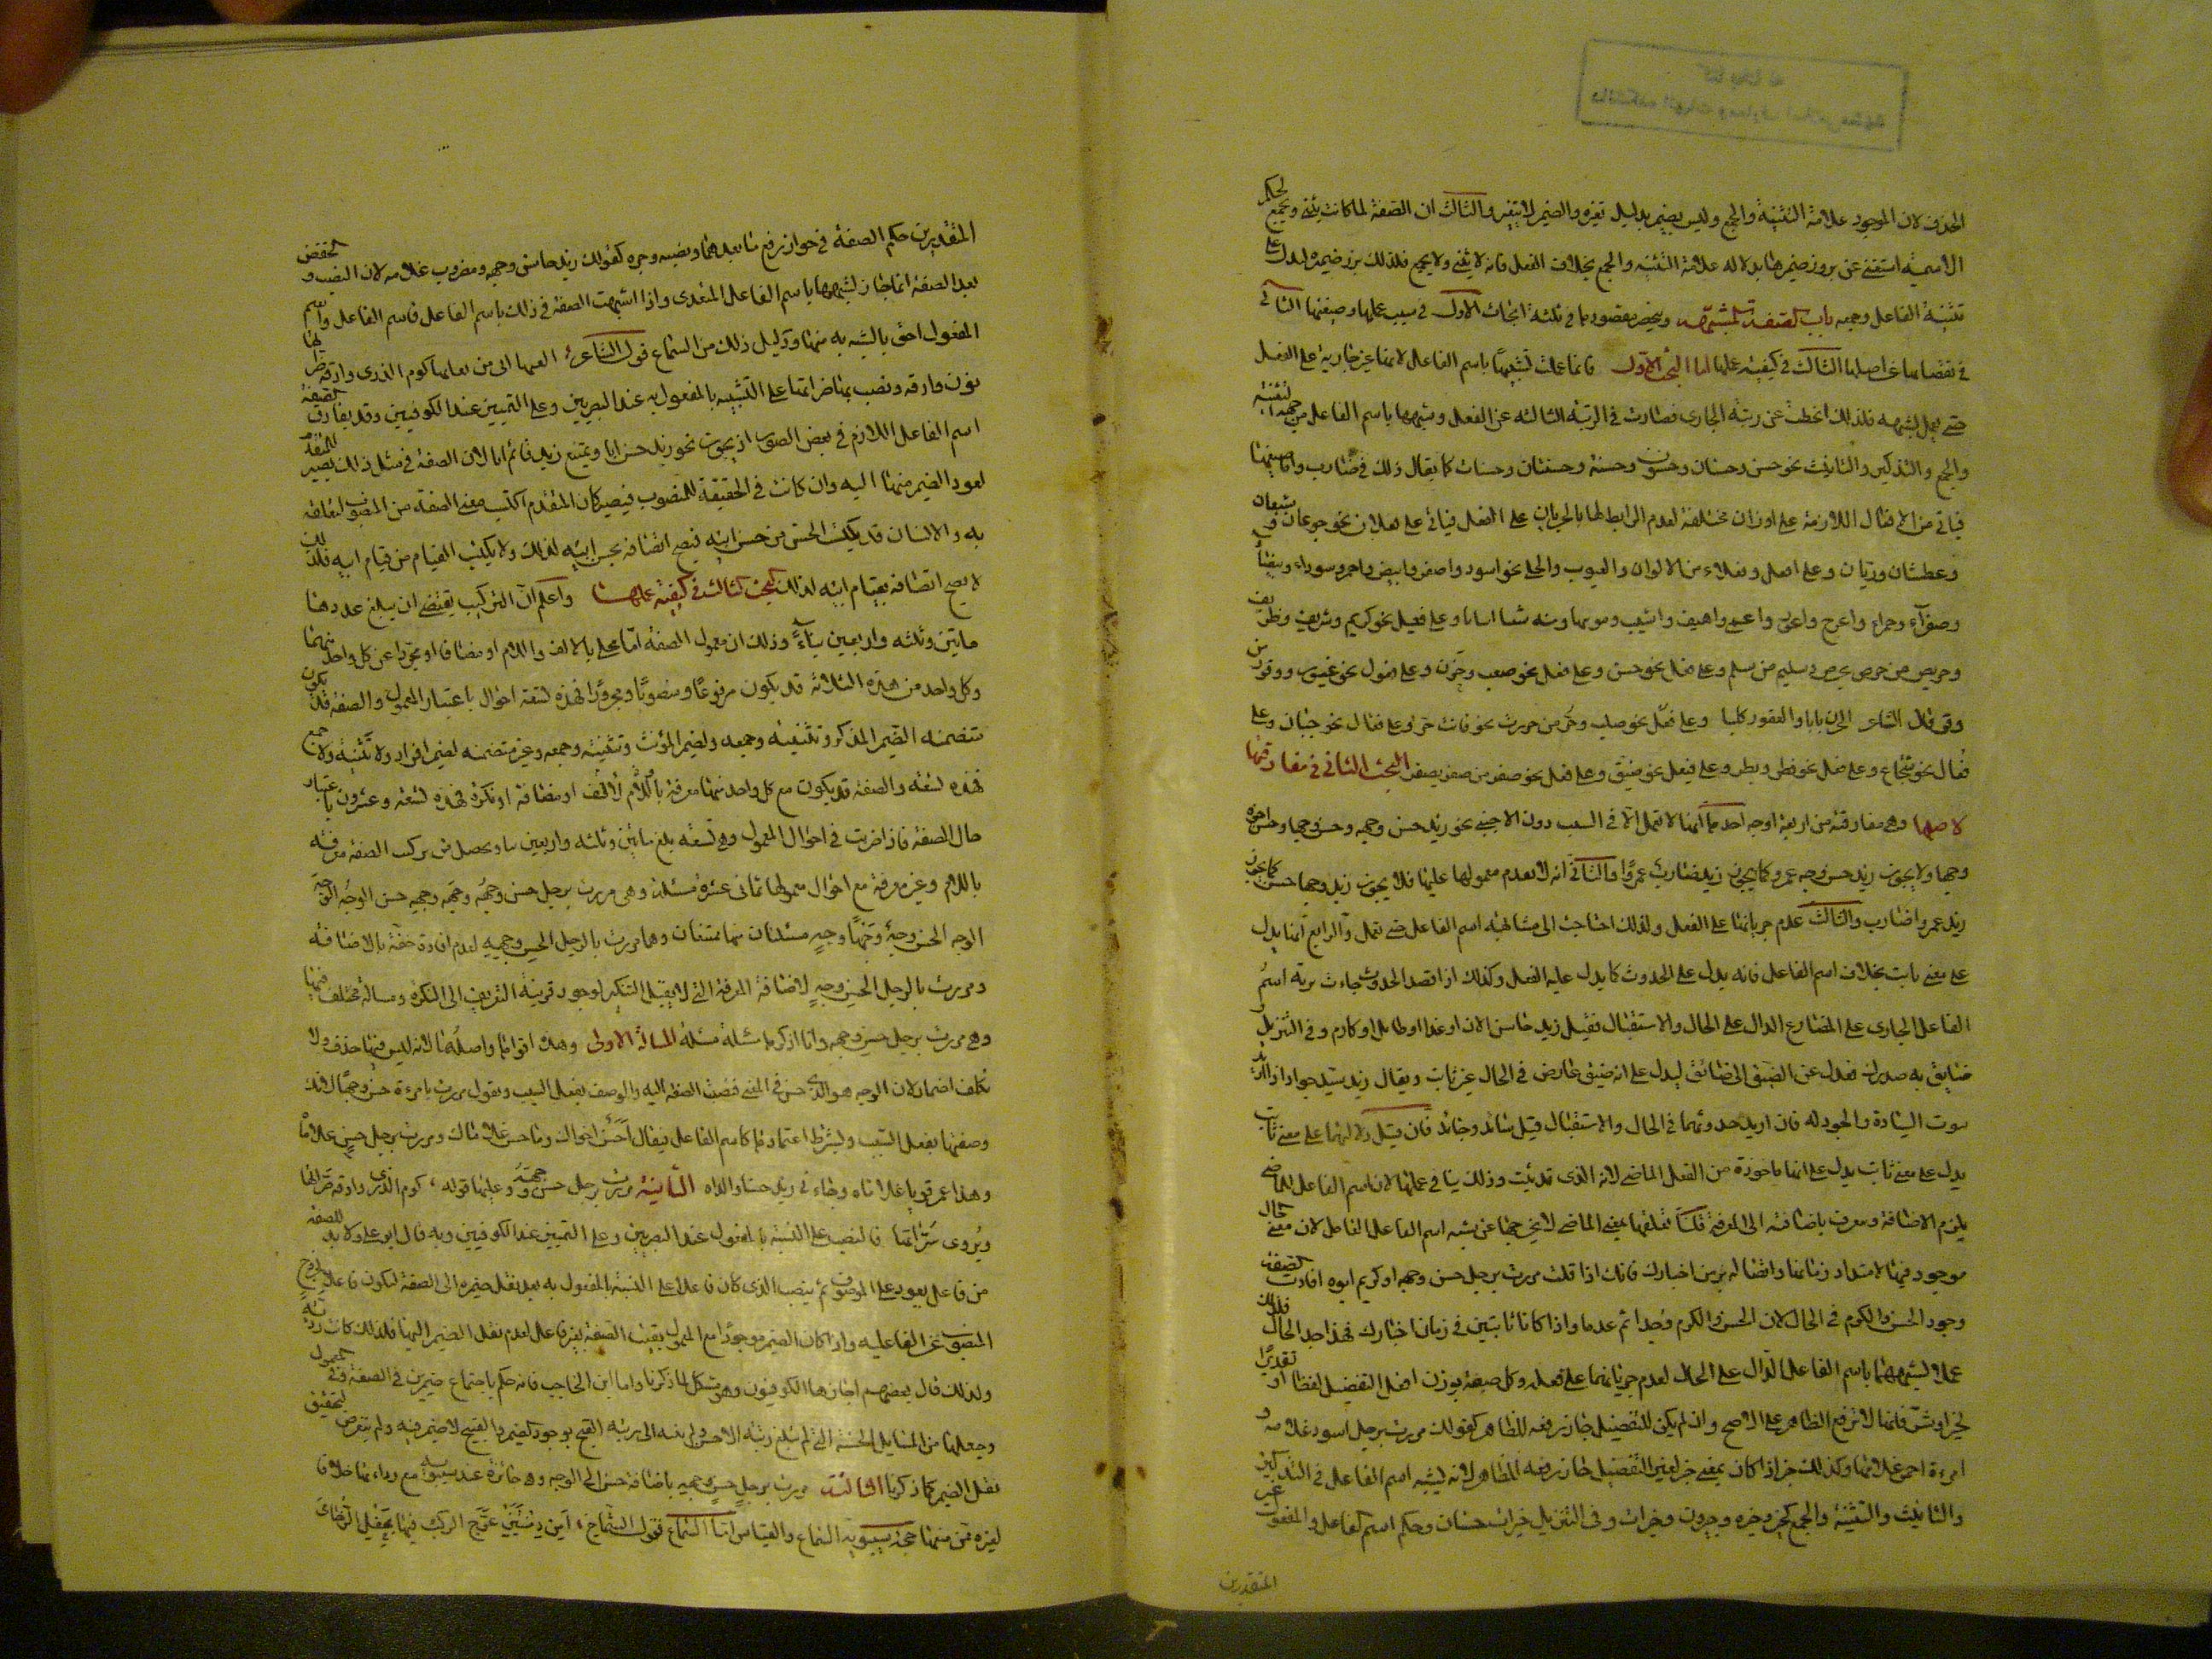 الحذف لان الموجود علامة التثنية والجمع وليس بضمير بدليل تغيره والضمير لا يتغير والثالث ان الصفة لما كانت يثنى ويجمع لحكم
الاسمية استغنى عن بروز ضميرها بدلالة علامة التثنية والجمع بخلاف الفعل فانه لا يثنى ولا يجمع فلذلك برز ضميره ليدل على
تثنية الفاعل وجمعه باب الصفة المشبهة وينحصر مقصودها في ثلثة ابحاث الاول في سبب عملها وصيغتها الثاني
في نقصانها عن اصلها الثالث في كيفية عملها اما البحث الاول فانما عملت تشبيهًا باسم الفاعل لانها غير جارية على الفعل
حتى تعمل بشبهه فلذلك انحطت عن رتبة الجاري فصارت في الرتبة الثالثة عن الفعل وشبهها باسم الفاعل من جهة التثنية
والجمع والتذكير والتانيث نحو حسن وحسنان وحسنون وحسنة وحسنتان وحسنات كما يقال ذلك في ضارب واما صيغتها
فياتي من الافعال اللازمة على اوزان مختلفة لعدم الرابط لها بالجريان على الفعل فياتي على فعلان نحو جوعان وشبعان
وعطشان وريان وعلى افعل وفعلاء من الالوان والعيوب والحلى نحو اسود واصفر وابيض واحمر وسوداء وبيضاء
وصفراء وحمراء واعرج واعور واعمى واهيف واشيب وعلى فعيل نحو كريم وشريف وظريف
وحريص من حرص يحرص وسليم من سلم وعلى فعل نحو حسن وعلى فعل نحو صعب وحزن وعلى فعول نحو غيور ووقور من
وقر قال الشاعر الحزن بابا والعقور كلبا وعلى فعل نحو صلب وحر من حررت نحو فانت حر وعلى فعال نحو جبان وعلى
فعال نحو شجاع وعلى فعل نحو فطن وبطر وعلى فيعل نحو ضيق وعلى فعل نحو صفر من صفر يصفر البحث الثاني في مفارقتها
لاصلها وهي مفارقته من اربعة اوجه احدها انها لا تعمل الا في السبب دون الاجنبي نحو زيد حسن وجهه وحسن وجها
وجها ولا يجوز زيد حسن وجه عمرو كما يجوز زيد ضارب عمرًا والثاني انه لا يقدم معمولها عليها فلا يجوز زيد وجها حسن كما يجوز
زيد عمرا ضارب والثالث عدم جريانها على الفعل ولذلك احتاجت الى مشابهة اسم الفاعل حتى تعمل والرابع انها يدل
على معنى ثابت بخلاف اسم الفاعل فانه يدل على الحدوث كما يدل عليه الفعل وكذلك اذا قصد الحدوث جاءت بزنة اسم
الفاعل الجاري على المضارع الدال على الحال والاستقبال فقيل زيد حاسن الان او غدا او طايل او كارم وفي التنزيل و
ضايق به صدرك فعدل عن الضيق الى ضائق ليدل على انه ضيق عارض في الحال غير ثابت ويقال زيد سيد جواد اذا اريد
ثبوت السيادة والجود له فان اريد حدوثهما في الحال والاستقبال قيل سائد وجائد فان قيل دلالتها على معنى ثابت
يدل على معنى ثابت يدل على انها ماخوذة من الفعل الماضي لانه الذي قد ثبت وذلك ينافي عملها لان اسم الفاعل للماضي
يلزم الاضافة وتعرف باضافته الى المعرفة قلنا تعلقها بمعنى الماضي لا يخرجها عن شبه اسم الفاعل العامل لان معنى الحال
موجود فيها لامتداد زمانها واتصاله بزمن اخبارك فانك اذا قلت مررت برجل حسن وجهه او كريم ابوه افادت الصفة
وجود الحسن والكرم في الحال لا ان الحسن والكرم وجدا ثم عدما واذا كانا ثابتين في زمان اخبارك فهذا حد الحال فلذلك
عملا لشبههما باسم الفاعل الدال على الحال لعدم جريانهما على فعله وكل صيغة بوزن افعل التفضيل لفظا او تقديرًا
لخير او شر فانها لا ترفع الظاهر على الاصح وان لم يكن للتفضيل جاز رفعه للظاهر كقولك مررت برجل اسود غلامه و
امرءة احمر غلامها وكذلك خير اذا كان بمعنى خير لغير التفضيل جاز رفعه الظاهر لانه يشبه اسم الفاعل في التذكير
والتانيث والتثنية والجمع كخير وخيرة وخيرون وخيرات وفي التنزيل خيرات حسان وحكم اسم الفاعل والمفعول غير
المتعديين
المتعديين حكم الصفة في جواز رفع ما بعدهما ونصبه وجره كقولك زيد حاسن وجهه ومضروب غلامه لان النصب والخفض
بعد الصفة انما جاز لشبهها باسم الفاعل المتعدى واذا اشبهت الصفة في ذلك باسم الفاعل فاسم الفاعل واسم
المفعول احق بالشبه به منها ودليل ذلك من السماع قول الشاعر كوم الذرى وادقة ضراتها
نون وادقه ونصب بها ضراتها على التشبيه بالمفعول به عند البصريين وعلى التمييز عند الكوفيين وقد يفارق الصفة
اسم الفاعل اللازم في بعض الصور اذ يجوز نحو زيد حسن ابا ويمتنع زيد قائم ابا لان الصفة في مثل ذلك تصير للمتقدم
لعود الضمير منها اليه وان كانت في الحقيقة للمنصوب فيصير كان المتقدم اكتسب معنى الصفة من المنصوب لتعلقه
به والانسان قد يكتسب الحسن من حسن ابيه فيصح اتصافه بحسن ابيه لذلك ولا يكتسب القيام من قيام ابيه فلذلك
لا يصح اتصافه بقيام ابيه لذلك البحث الثالث في كيفية عملها واعلم ان التركيب يقتضى ان يبلغ عددها
مايتين وثلثة واربعين بناءً وذلك ان معمول الصفة اما محلى بالالف واللام او مضاف او مجرد عن كل واحد منهما
وكل واحد من هذه الثلاثة قد يكون مرفوعًا ومنصوبًا ومجرورًا فهذه تسعة احوال باعتبار المعمول والصفة قد تكون
متضمنه لضمير المذكر وتثنيته وجمعه ولضمير المؤنث وتثنيته وجمعه وغير متضمنه لضمير افراد ولا تثنية ولا جمع
فهذه تسعة والصفة قد يكون مع كل واحد منها معرفة باللام والالف او مضافة او نكرة فهذه تسعة وعشرون باعتبار
حال الصفة فاذا ضربت في احوال المعمول وهي تسعة بلغ مايتين وثلثه واربعين بناء ويحصل من تركيب الصفة معرفة
باللام وغير معرفة مع احوال معمولها ثمانى عشرة مسئلة وهى مررت برجل حسن وجهُه وجهَه وجهِه حسن الوجهُ الوجهَ
الوجهِ الحسن وجهٌ وجهًا وجهٍ مسئلتان منها ممتنعان وهما مررت بالرجل الحسن وجهِه لعدم افادة خفة بالاضافة
ومررت بالرجل الحسن وجهٍ لاضافة المعرفة التى لا يقبل التنكير لوجود قرينة التعريف الى النكرة ومسألة مختلف فيها
وهى مررت برجل حسن وجهه وانا اذكرها مسئلة مسئلة المسالة الاولى وهذه اقواها واصلها لانه ليس فيها حذف ولا
تكلف اضمار لان الوجه هو الذي حسن في المعنى فضفت الصفة اليه والوصف بفعل السبب وتقول مررت بامرءة حسن وجهها لانك
وصفتها بفعل السبب ويشترط اعتمادها كاسم الفاعل فيقال احسن اخواك وما حسن غلاماك ومررت برجل حسن غلاماه
وهذا عمرو قويا غلاماه وجاءني زيد حسنا والداه الثانية مررت برجل حسن وجهَه وعليها قوله كوم الذرى وادقة ضراتها
ويُروى سراتها فالنصب على التشبيه بالمفعول عند البصريين وعلى التمييز عند الكوفيين وبه قال ابو على ولا بد للصفة
من فاعل يعود على الموصوف ثم ينصب الذى كان فاعلا على التشبيه بالمفعول به بعد نقل ضميره الى الصفة ليكون فاعلا لخروج
المنصوب عن الفاعليه واذا كان الضمير موجودًا مع المعمول بقيت الصفة بغير فاعل لعدم نقل الضمير اليها فلذلك كانت رديّة
ولذلك قال بعضهم اجازها الكوفيون وهو مشكل لما ذكرنا واما ابن الحاجب فانه حكم باجتماع ضميرين في الصفة وفى المعمول
وجعلها من المسايل الحسنة التى لم تبلغ رتبة الاحسن ولم تنته الى رتبة القبح بوجود الضمير والقبيح لا ضمير فيه ولم يتعرض لتحقيق
نقل الضمير كما ذكرنا الثالثة مررت برجل حسن وجهِه باضافة حسن الى الوجه وهى جائزة عند سيبويه مع رداءتها خلافا
لغيره فمن منعها حجة سيبويه السماع والقياس اما السماع فقول الشماخ أمن دمنتين عرّج الركب فيهما بحقل الرخامى